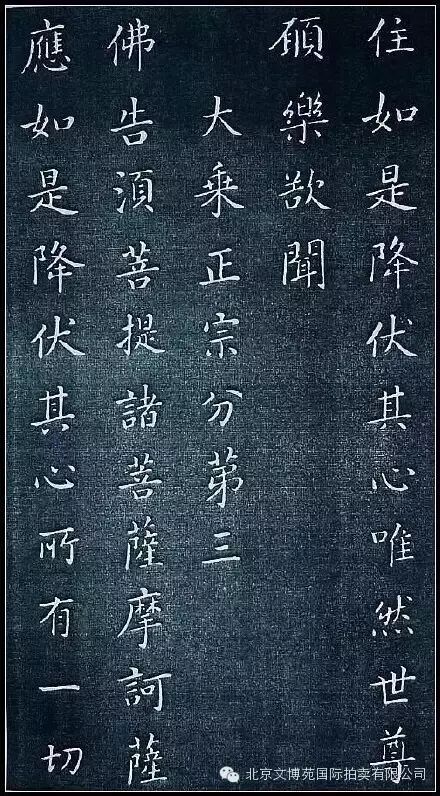 住如是降伏其心唯然世尊
願樂欲聞
大乗正宗分苐三
佛告湏菩提諸菩薩摩訶薩
應如是降伏其心所有一切
北京文博苑国际拍卖有限公司